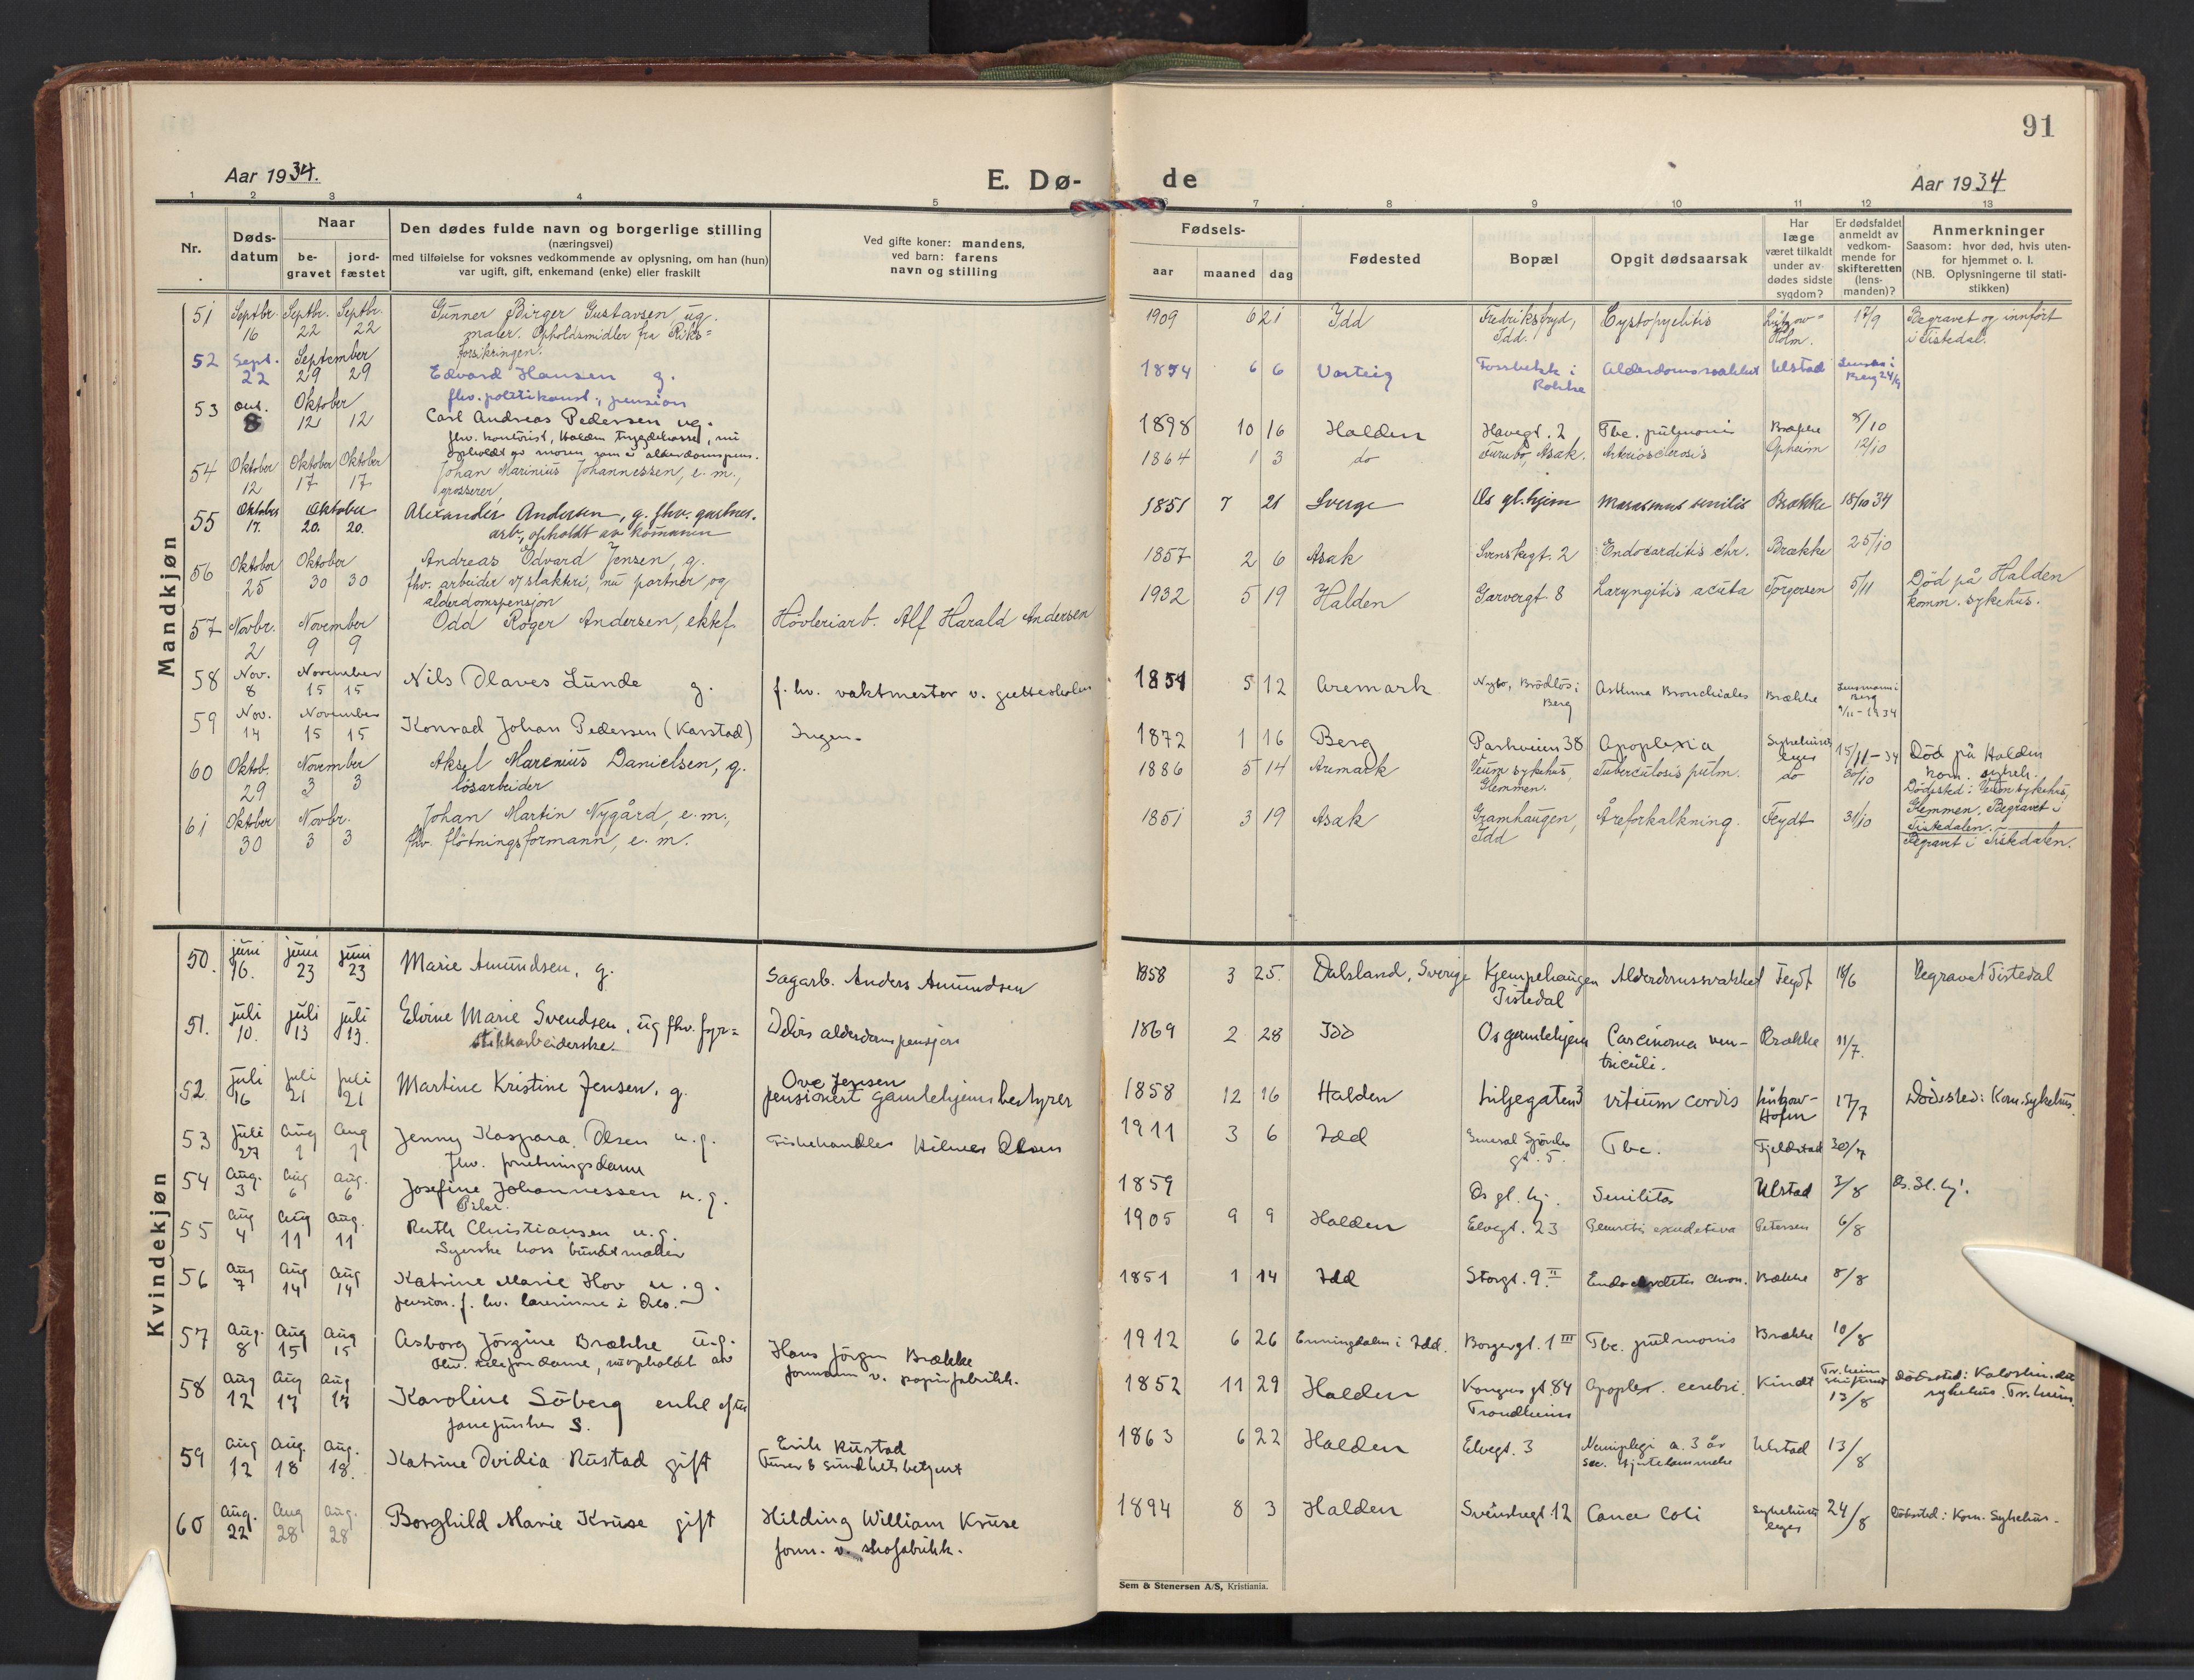 91
Aar 1934.
E. Dø-
de
Aar 1934
1 2 3 4 5 6 7 8 9 10 11 12 13
Nr.
Døds-
datum
Naar
be-
gravet
jord-
fæstet
Den dødes fulde navn og borgerlige stilling
(næringsvei)
med tilføielse for voksnes vedkommende av oplysning, om han (hun)
var ugift, gift, enkemand (enke) eller fraskilt
Ved gifte koner: mandens,
ved barn: farens
navn og stilling
Fødsels-
aar maaned dag
Fødested
Bopæl
Opgit dødsaarsak
Har
læge
været tilkaldt
under av-
dødes sidste
sygdom?
Er dødsfaldet
anmeldt av
vedkom-
mende for
skifteretten
(lens-
manden)?
Anmerkninger
Saasom: hvor død, hvis uten-
for hjemmet o. l.
(NB. Oplysningerne til stati-
stikken)
Mandkjøn
51 Septbr. Septbr. Septbr. Gunner Birger Gustavsen, ug. 1909 6 21 Idd Fredriksfryd, Cystopyelitis Lützow= 17/9 Begravet og innført
16 22 22 maler. Opholdsmidler fra Riks= Idd. Holm. i Tistedal.
forsikringen.
52 Sept. September Edvard Hansen g. 1874 6 6 Varteig Fossbekk i Alderdomssvakhet Ulstad Lensm. i
22 29 29 fhv. politikonst., pension Rokke Berg 24/9
53 Okt. Oktober Carl Andreas Pedersen ug. 1898 10 16 Halden Havegt. 2 Tbc. pulmonis Brække 8/10
8 12 12 fhv. kontorist, Halden trygdekasse, nu
opholdt av moren som er alderdomspens.
54 Oktober Oktober Oktober Johan Marinius Johannessen, e. m., 1864 1 3 do Furubo, Asak. Arteriosclerosis Opheim 12/10
12 17 17 grosserer,
55 Oktober Oktober Alexander Andersen, g. fhv. gartner. 1851 7 21 Sverge Os gl. hjem Marasmus senilis Brække 18/10 34
17. 20. 20. arb., opholdt av kommunen
56 Oktober Oktober Andreas Edvard Jensen, g. 1857 2 6 Asak Svenskegt. 2 Endocarditis chr. Brække 25/10
25 30 30 fhv. arbeider v/ slakteri, nu portner, og
alderdomspensjon
57 Novbr. November Odd Roger Andersen, ektef. Høvleriarb. Alf Harald Andersen 1932 5 19 Halden Garvergt. 8 Laryngitis acuta Torgersen 5/11 Död på Halden
2 9 9 komm. sykehus.
58 Nov. November Nils Olaves Lunde g. f. hv. vaktmester v. gutteskolen 1854 5 12 Aremark Nybo, Brödlös i Asthma Bronchiales Brække Lensmann i
8 15 15 Berg Berg
9/11 - 1934
59 Nov. November Konrad Johan Pedersen (Karstad) Ingen. 1872 1 16 Berg Parkveien 38 Apoplexia Sykehusets 15/11 - 34 Död på Halden
14 15 15 leges kom. sykeh.
60 Oktob. November Aksel Marenius Danielsen, g. 1886 5 14 Aremark Veum sykehus, Tuberculosis pulm. do 30/10 Dödssted: Veum sykehus,
29 3 3 løsarbeider Glemmen. Glemmen. Begravet i
Tistedalen.
61 Oktober Novbr. Johan Martin Nygård, e. m., 1851 3 19 Asak Gramhaugen, Åreforkalkning. Feydt 31/10 Begravet i Tistedalen.
30 3 3 fhv. fløtningsformann, e. m. Idd
Kvindekjøn
50. juni juni juni Marie Amundsen, g. Sagarb. Anders Amundsen 1858 3 25. Dalsland, Sverige Kjempehaugen Alderdomssvakhet Feydt 18/6 Begravet Tistedal
16. 23 23 Tistedal
51. juli juli juli Elvine Marie Svendsen, ug fhv. fyr= Delvis alderdomspensjon 1869 2 28 Idd Os gamlehjem Carcinoma ven- Brække 11/7.
10. 13 13. stikkarbeiderske. triculi.
52 juli juli juli Martine Kristine Jensen, g. Ove Jensen 1858 12 16 Halden Liljegaten 3 Vitium cordis Lützow- 17/7 Dödssted: Kom. Sykehus.
16 21 21 pensionert gamlehjemsbestyrer Holm
53 juli aug aug Jenny Kaspara Olsen u. g. Fiskehandler Hilmer Olsen 1911 3 6 Idd General Tbc. Fjeldstad 30/7
27 1 1 fhv. forretningsdame gt. 5.
54 Aug. Aug Aug. Josefine Johannessen u. g. 1859 Os gl. hj. Senilitas Ulstad 3/8 Os. Gl. hj.
3 6 6
55 Aug Aug Aug. Ruth Christiansen u. g. 1905 9 9 Halden Elvegt. 23 Pleuritis exudativa Petersen 6/8
4 11 11 Syerske hoss buntmaker
56 Aug Aug Aug Katrine Marie Hov u. g. 1851 1 14 Idd Storgt. 9 II Endocarditis chron. Brække 8/8
7 14 14 pension. f. hv. lærerinne i Oslo.
57 Aug. Aug Aug Asborg Jörgine Brække ug. Hans Jörgen Brække 1912 6 26 Enningdalen i Idd. Borgergt. 1 III Tbc. pulmonis Brække 10/8
8 15 15 fhv. telefondame, nu opholdt av formann v. papirfabrikk.
58 Aug Aug Aug Karoline Söberg enke efter 1852 11 29 Halden Kongens gt 84 Apoplex. cerebri. Kindt Tr. heim Dödssted:
12 17 17 S. Trondheim skifterett 13/8 sykehus. Tr. heim.
59 Aug Aug. Aug. Katrine Ovidia Rustad gift Erik Rustad 1863 6 22 Halden Elvegt. 3 Hemiplegi a. 3 år Ulstad 13/8
12 18 18. sec. hjertelammelse
60 Aug. Aug Aug. Borghild Marie Kruse gift Hilding William Kruse 1894 8 3 Halden Svenskegt. 12 Cancer Coli Sykehusets 24/8 Dödssted: Kom. Sykehus.
22 28 28 form. v. skofabrikk. leges
Sem & Stenersen A/S, Kristiania.